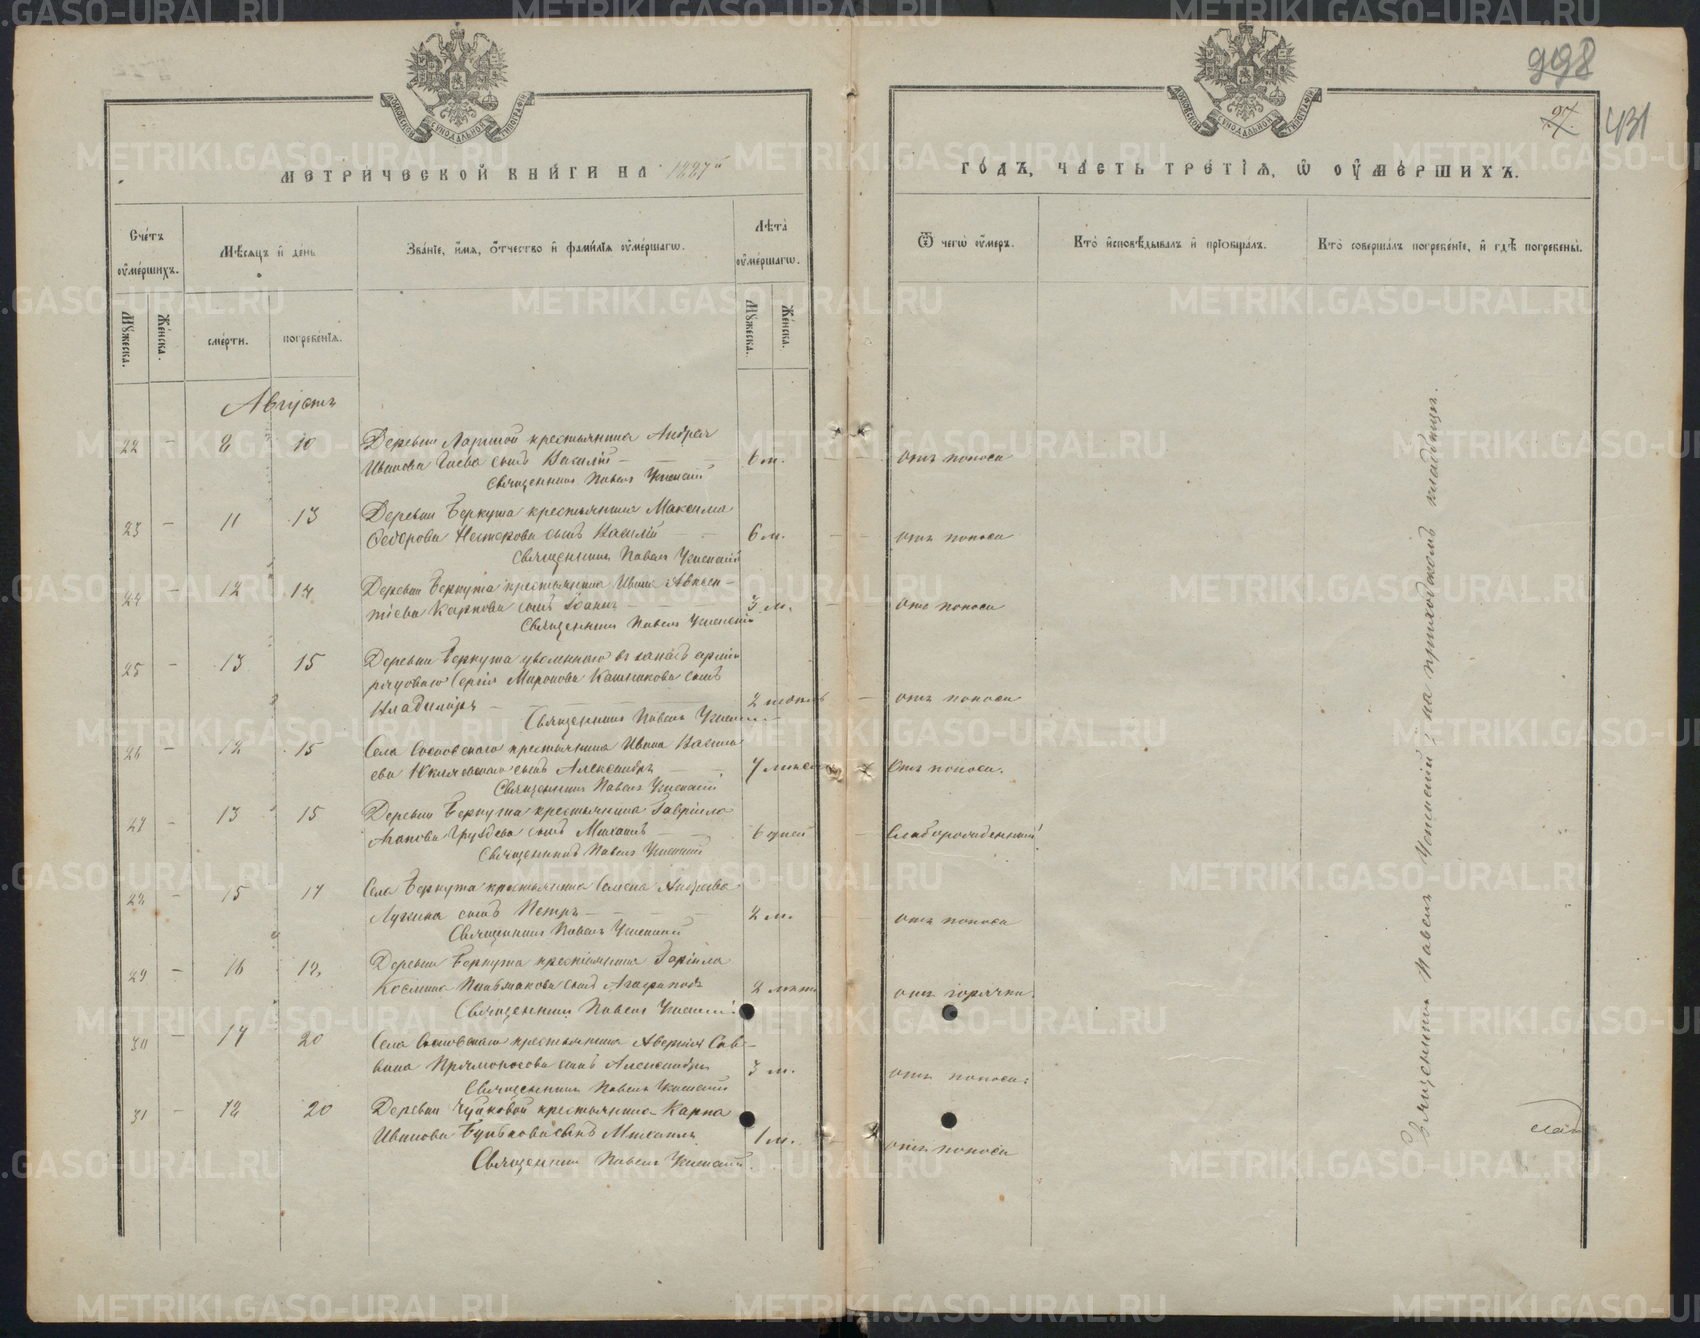 998
97
431
МЕТРИЧЕСКОЙ КНИГИ НА 1887й
ГОДЪ, ЧАСТЬ ТРЕТІЯ, Ѡ ОУМЕРШИХЪ.
Счетъ оумершихъ.
Мѣсяцъ и день
Званіе, имя, отчество и фамилія оумершагѡ.
Лѣта оумершагѡ.
Ѿ чегѡ оумеръ.
Кто исповѣдывалъ и пріобщалъ.
Кто совершалъ погребеніе, и гдѣ погребены.
Мужеска.
Женска.
смерти.
погребенія.
Мужеска.
Женска.
Августъ
22 – 8 10 Деревни крестьянина Андрея
Иванова сынъ Василій – 6 м. отъ поноса
Священникъ Павелъ Успенскій
23 – 11 13 Деревни Беркута крестьянина Максима
Ѳедорова Нестерова сынъ Василій – 6 м. – отъ поноса
Священникъ Павелъ Успенскій
24 – 12 14 Деревни Беркута крестьянина Ивана Авксен-
тіева Карпова сынъ Іоаннъ – 3 м. – отъ поноса
Священникъ Павелъ Успенскій
25 – 13 15 Деревни Беркута уволеннаго въ запасъ арміи
рядоваго Сергія Миронова Калашникова сынъ
Владиміръ – 2 – отъ поноса
Священникъ Павелъ Успенскій
26 – 12 15 Села Сосновскаго крестьянина Ивана Василь
ева сынъ Александръ – 7 отъ поноса.
Священникъ Павелъ Успенскій
27 – 13 15 Деревни Беркута крестьянина Гавріила
Агапова Груздева сынъ Михаилъ – 6 дней – Слаборожденный
Священникъ Павелъ Успенскій
28 – 15 17 Села Беркута крестьянина Семена
Лукина сынъ Петръ – 2 м. – отъ поноса
Священникъ Павелъ Успенскій
29 – 16 18 Деревни Беркута крестьянина
Косьмина сынъ Агафподъ 2 отъ горячки.
Священникъ Павелъ Успенскій
30 – 17 20 Села Сосновскаго крестьянина Аверкія Сав-
вина Прямоносова сынъ Александръ 3 м. отъ поноса.
Священникъ Павелъ Успенскій
31 – 18 20 Деревни крестьянина Карпа
Иванова сынъ Михаилъ 1 м. отъ поноса
Священникъ Павелъ Успенскій.
Священникъ Павелъ Успенскій; на приходскомъ кладбищѣ.
METRIKI.GASO-URAL.RU